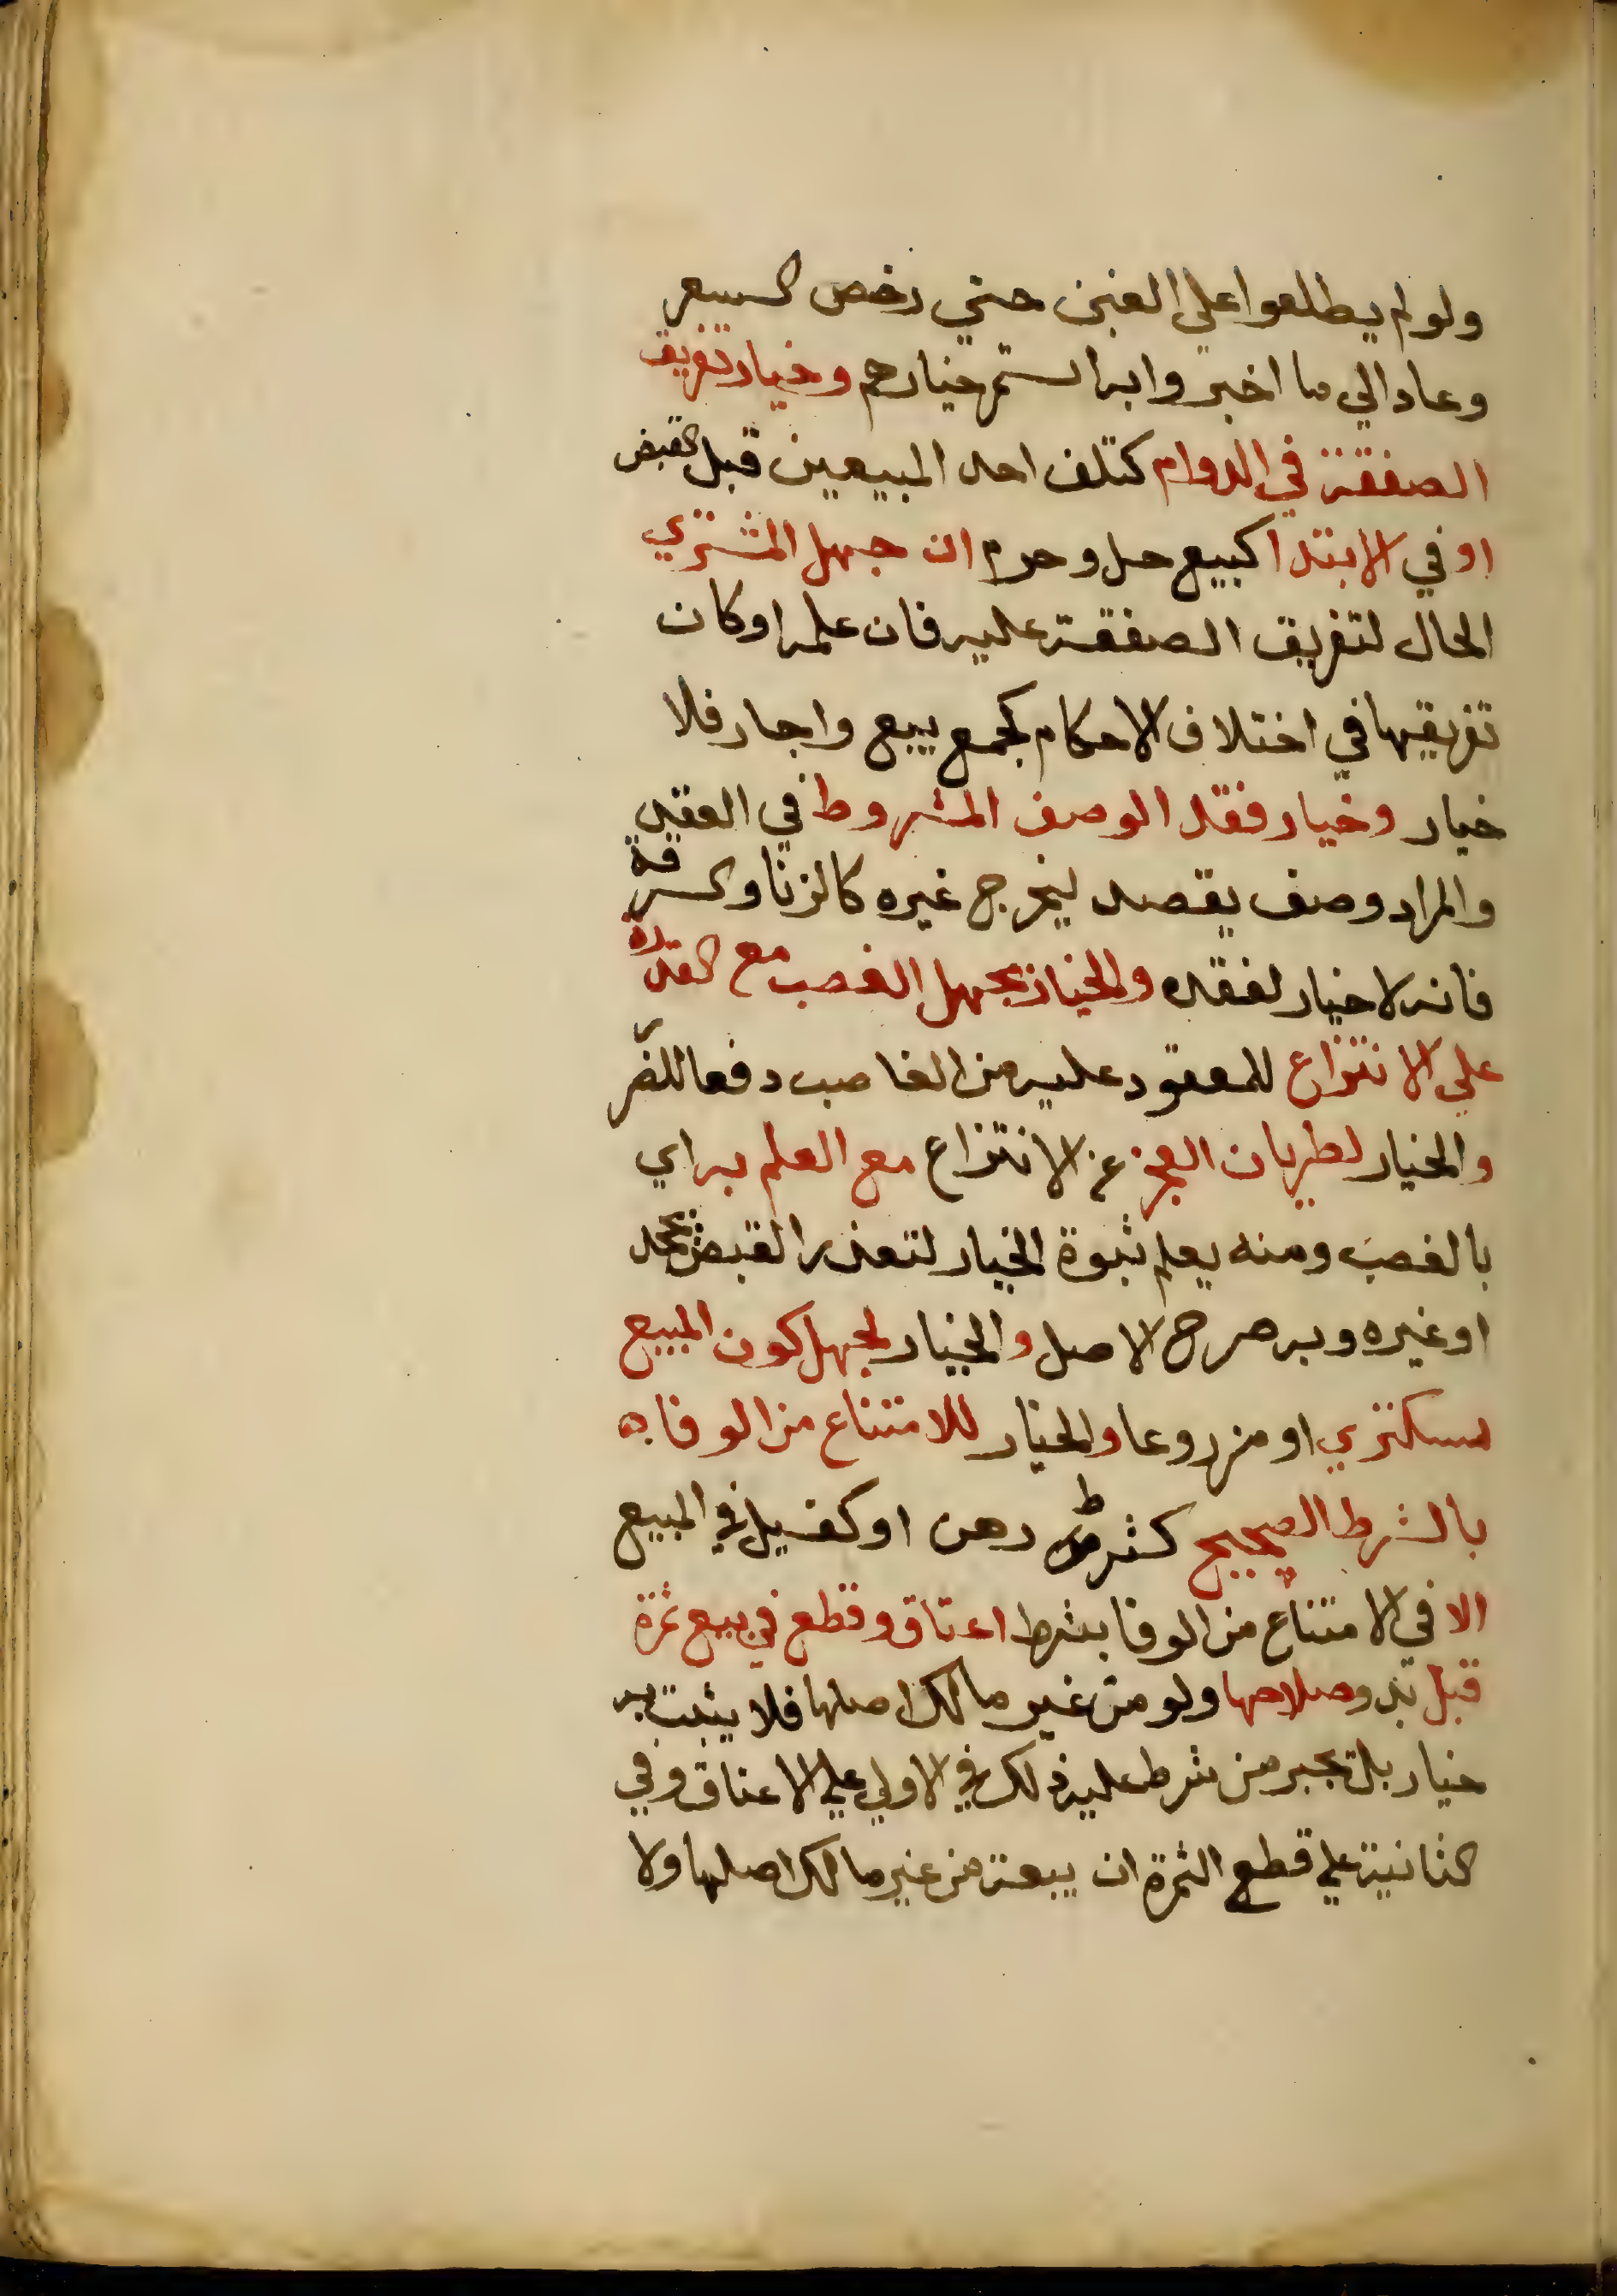 ولو لم يطلعوا علي الغبن حتي رخص السعر
وعاد الي ما اخبروا به استمر خيارهم وخيار تفريق
الصفقة في الدوام كتلف احد المبيعين قبل القبض
او في الابتدا كبيع حل وحرم ان جهل المشتري
الحال لتفريق الصفقة عليه فان علمه او كان
تفريقها في اختلاف الاحكام كجمع بيع واجارة فلا
خيار وخيار فقد الوصف المشروط في العقد
والمراد وصف يقصد ليخرج غيره كالزنا والسرقة
فانه لا خيار لفقده والخيار بجهل الغصب مع القدرة
علي الانتزاع للمعقود عليه من الغاصب دفعا للضرر
والخيار لطريان العجز عن الانتزاع مع العلم به اي
بالغصب ومنه يعلم ثبوة الخيار لتعذر القبض بجحد
او غيره وبه صرح الاصل والخيار لجهل كون المبيع
مسكتري او مزروعا والخيار للامتناع من الوفاء
بالشرط الصحيح كشرط رهن او كفيل في المبيع
الا في الامتناع من الوفا بشرط اعتاق وقطع في بيع ثمرة
قبل بدو صلاحها ولو من غير مالك اصلها فلا يثبت به
خيار بل تجبر من شرط عليه ذلك في الاولي علي الاعتاق وفي
الثانية علي قطع الثمرة ان بيعت من غير مالك اصلها ولا